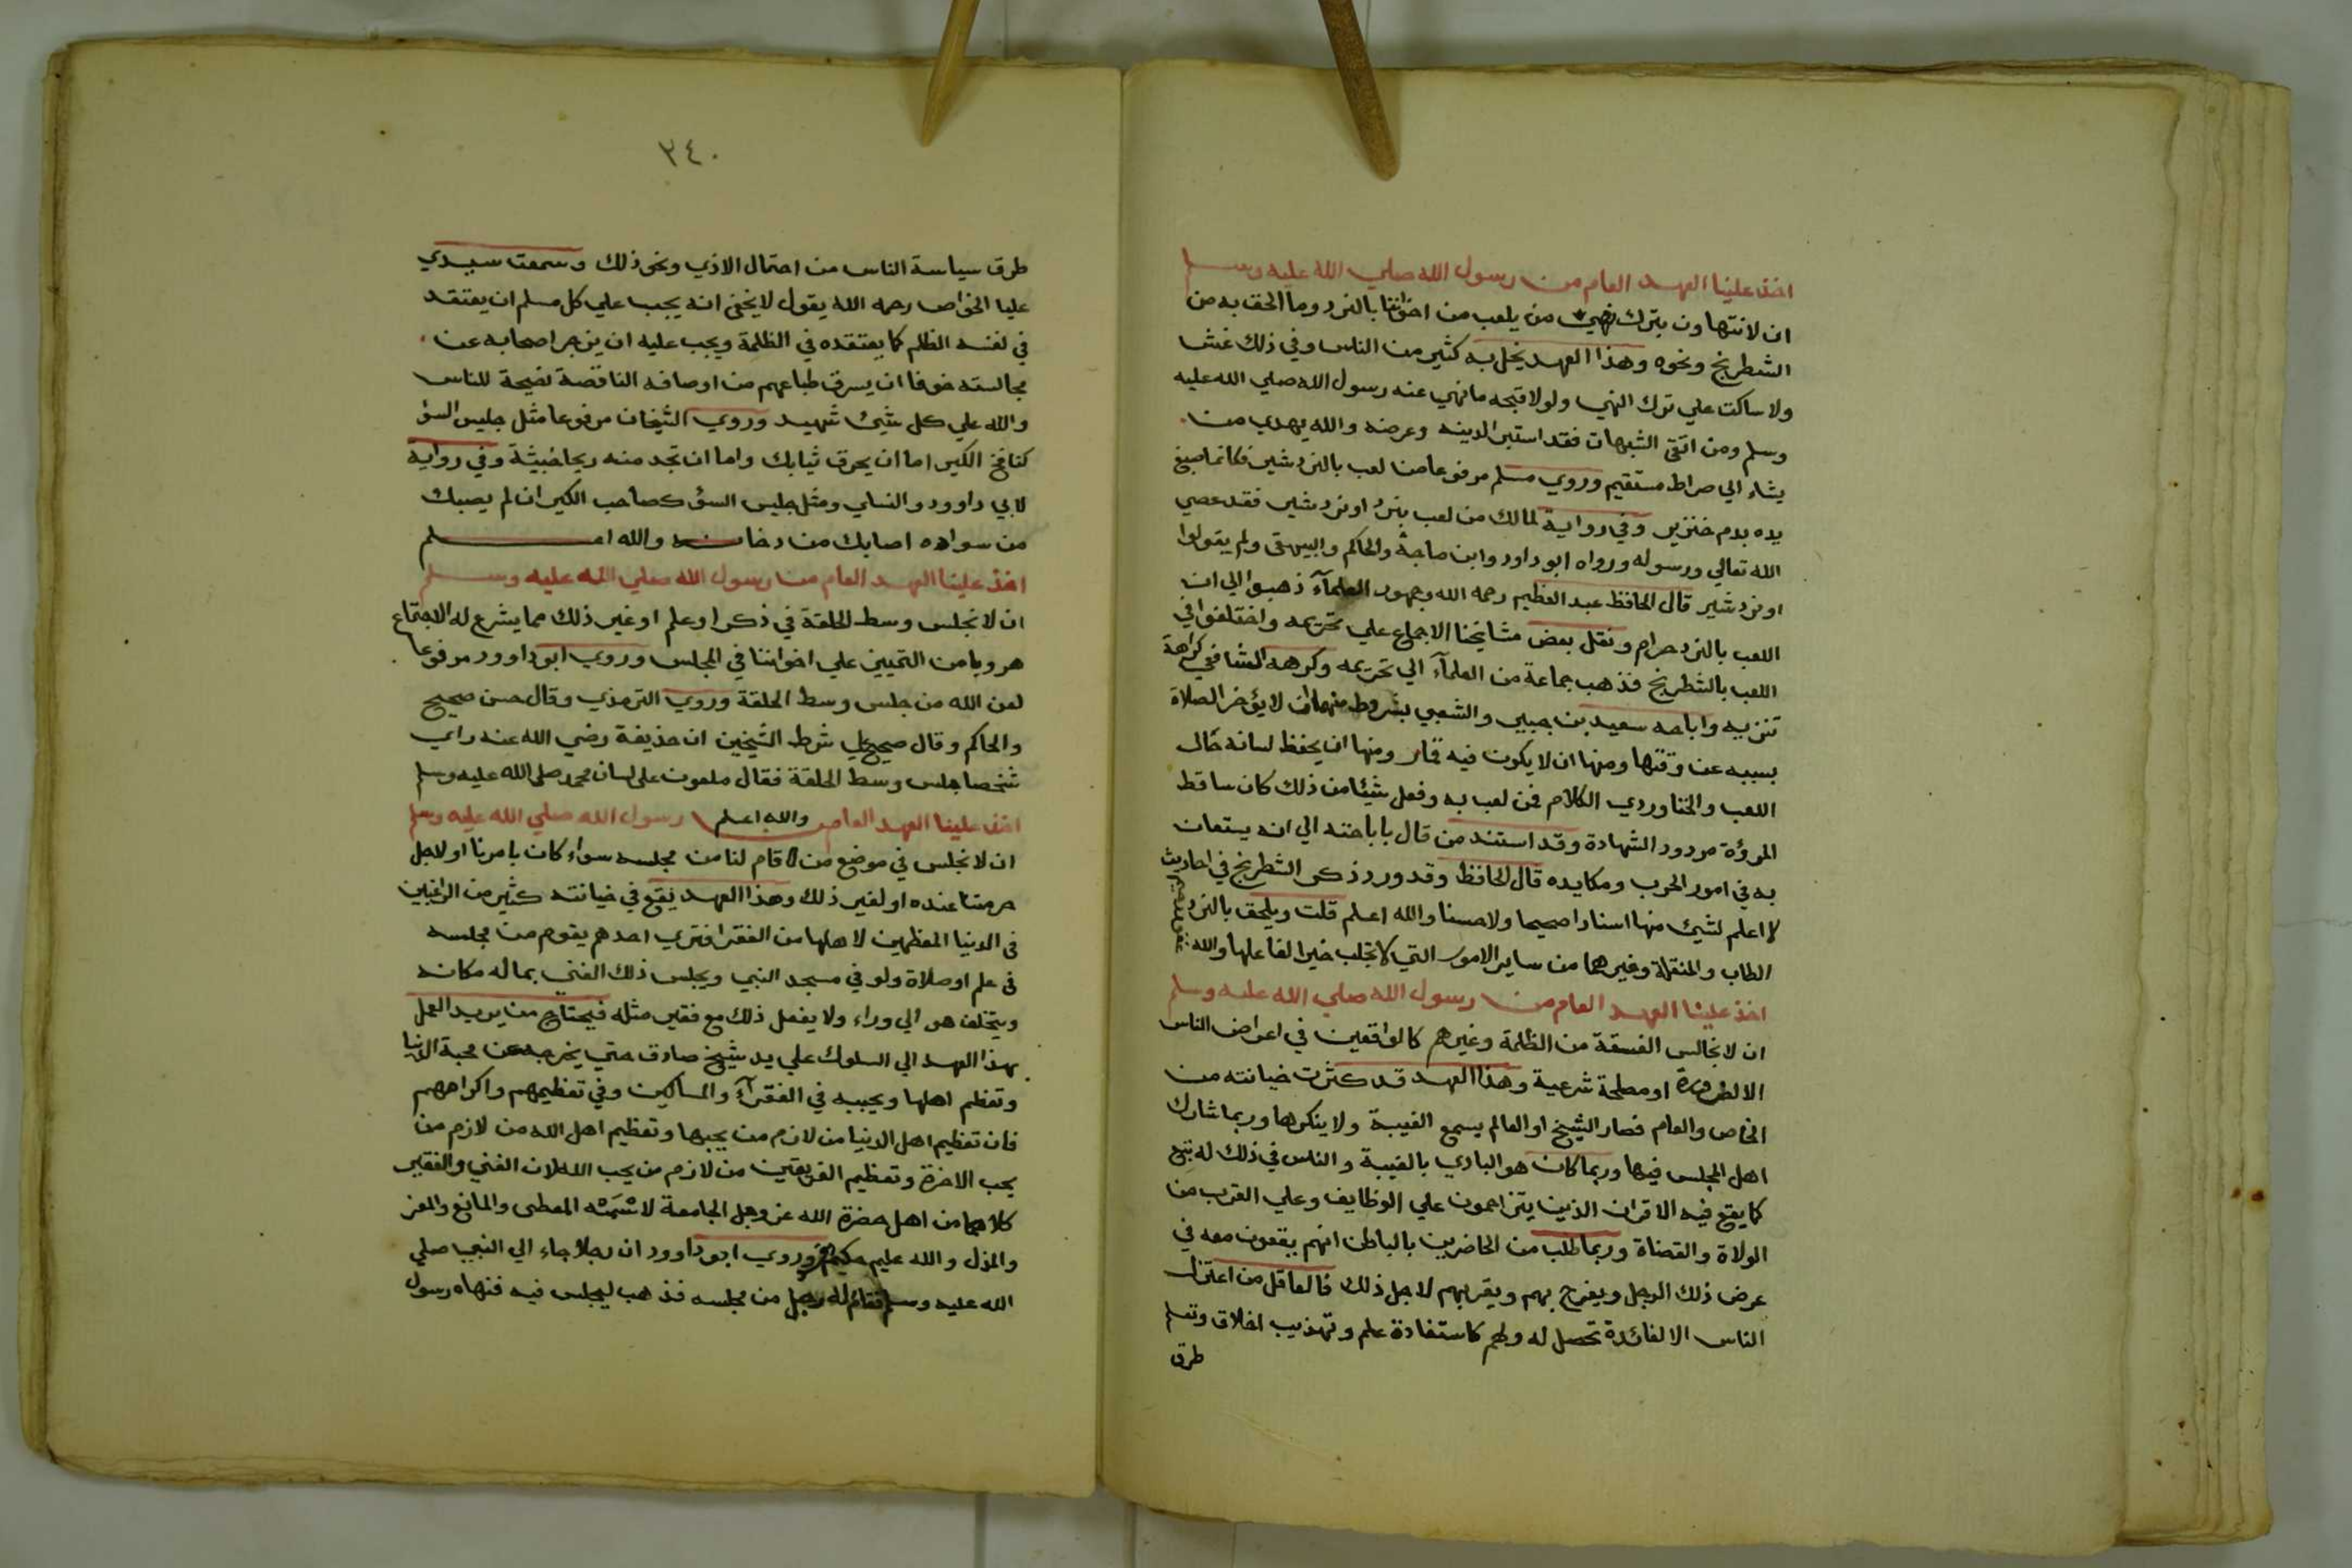 اخذ علينا العهد العام من رسول الله صلي الله عليه وسلم
ان لا نتهاون بترك نهي من يلعب من اخواننا بالنرد وما الحق به من
الشطرنج ونحوه وهذا العهد يخل به كثير من الناس وفي ذلك غش
ولا ساكت علي ترك النهي ولولا قبحه ما نهي عنه رسول الله صلي الله عليه
وسلم ومن اتقي الشبهات فقد استبرا لدينه وعرضه والله يهدي من
يشاء الي صراط مستقيم وروي مسلم مرفوعا من لعب بالنردشير فكانما صبغ
يده بدم خنزير وفي رواية لمالك من لعب بنرد او نردشير فقد عصي
الله تعالي ورسوله ورواه ابو داود وابن ماجة والحاكم والبيهقي ولم يقولوا
او نردشير قال الحافظ عبد العظيم رحمه الله وجمهور العلمآء ذهبوا الي ان
اللعب بالنرد حرام ونقل بعض مشايخنا الاجماع علي تحريمه واختلفوا في
اللعب بالشطرنج فذهب جماعة من العلمآء الي تحريمه وكرهه الشافعي كراهة
تنزيه واباحه سعيد بن جبير والشعبي بشروط منها ان لا يؤخر الصلاة
بسببه عن وقتها ومنها ان لا يكون فيه قمار ومنها ان يحفظ لسانه حال
اللعب والخنا وردي الكلام فمن لعب به وفعل شيئا من ذلك كان ساقط
المروءة مردود الشهادة وقد استند من قال باباحته الي انه يستعان
به في امور الحرب ومكايده قال الحافظ وقد ورد ذكر الشطرنج في احاديث
لا اعلم لشيئ منها اسنادا صحيحا ولا حسنا والله اعلم قلت ويلحق بالنرد
الطاب والمنقلة وغيرهما من ساير الامور التي لا تجلب خيرا لفاعلها والله
غفور رحيم
اخذ علينا العهد العام من رسول الله صلي الله عليه وسلم
ان لا نجالس الفسقة من الظلمة وغيرهم كالواقعين في اعراض الناس
الا لضرورة او مصلحة شرعية وهذا العهد قد كثرت خيانته من
الخاص والعام فصار الشيخ او العالم يسمع الغيبة ولا ينكرها وربما شارك
اهل المجلس فيها وربما كان هو البادي بالغيبة والناس في ذلك له تبع
كما يقع فيه الاقران الذين يتزاحمون علي الوظايف وعلي القرب من
الولاة والقضاة وربما طلب من الحاضرين بالباطن انهم يقعون معه في
عرض ذلك الرجل ويفرح بهم ويقربهم لاجل ذلك فالعاقل من اعتزل
الناس الا لفائدة تحصل له ولهم كاستفادة علم وتهذيب اخلاق وتعلم
طرق
٢٤٠
طرق سياسة الناس من احتمال الاذي ونحو ذلك وسمعت سيدي
عليا الخواص رحمه الله يقول لا يخفي انه يجب علي كل مسلم ان يعتقد
في نفسه الظلم كما يعتقده في الظلمة ويجب عليه ان يزجر اصحابه عن
مجالسته خوفا ان يسرق طباعهم من اوصافه الناقصة نصيحة للناس
والله علي كل شيئ شهيد وروي الشيخان مرفوعا مثل جليس السؤ
كنافخ الكير اما ان يحرق ثيابك واما ان تجد منه ريحا خبيثة وفي رواية
لابي داوود والنساي ومثل جليس السؤ كصاحب الكير ان لم يصبك
من سواده اصابك من دخانه والله اعلم
اخذ علينا العهد العام من رسول الله صلي الله عليه وسلم
ان لا نجلس وسط الحلقة في ذكر او علم او غير ذلك مما يشرع له الاجتماع
هروبا من التمييز علي اخواننا في المجلس وروي ابو داوود مرفوعا
لعن الله من جلس وسط الحلقة وروي الترمذي وقال حسن صحيح
والحاكم وقال صحيح علي شرط الشيخين ان حذيفة رضي الله عنه راي
شخصا جلس وسط الحلقة فقال ملعون علي لسان محمد صلي الله عليه وسلم
والله اعلم
اخذ علينا العهد العام من رسول الله صلي الله عليه وسلم
ان لا نجلس في موضع من قام لنا من مجلسه سواء كان بامرنا او لاجل
حرمتنا عنده او لغير ذلك وهذا العهد يقع في خيانته كثير من الراغبين
في الدنيا المعظمين لاهلها من الفقرا فتري احدهم يقوم من مجلسه
في علم او صلاة ولو في مسجد النبي ويجلس ذلك الغني بماله مكانه
ويتخلف هو الي وراء ولا يفعل ذلك مع فقير مثله فيحتاج من يريد العمل
بهذا العهد الي السلوك علي يد شيخ صادق حتي يخرجه عن محبة الدنيا
وتعظم اهلها ويحببه في الفقرآء والمساكين وفي تعظيمهم واكرامهم
فان تعظيم اهل الدنيا من لازم من يحبها وتعظيم اهل الله من لازم من
يحب الاخرة وتعظيم الفريقين من لازم من يحب الله لان الغني والفقير
كلاهما من اهل حضرة الله عز وجل الجامعة لاسمه المعطي والمانع والمعز
والمذل والله عليم حكيم وروي ابو داوود ان رجلا جاء الي النبي صلي
الله عليه وسلم فقام له رجل من مجلسه فذهب ليجلس فيه فنهاه رسول